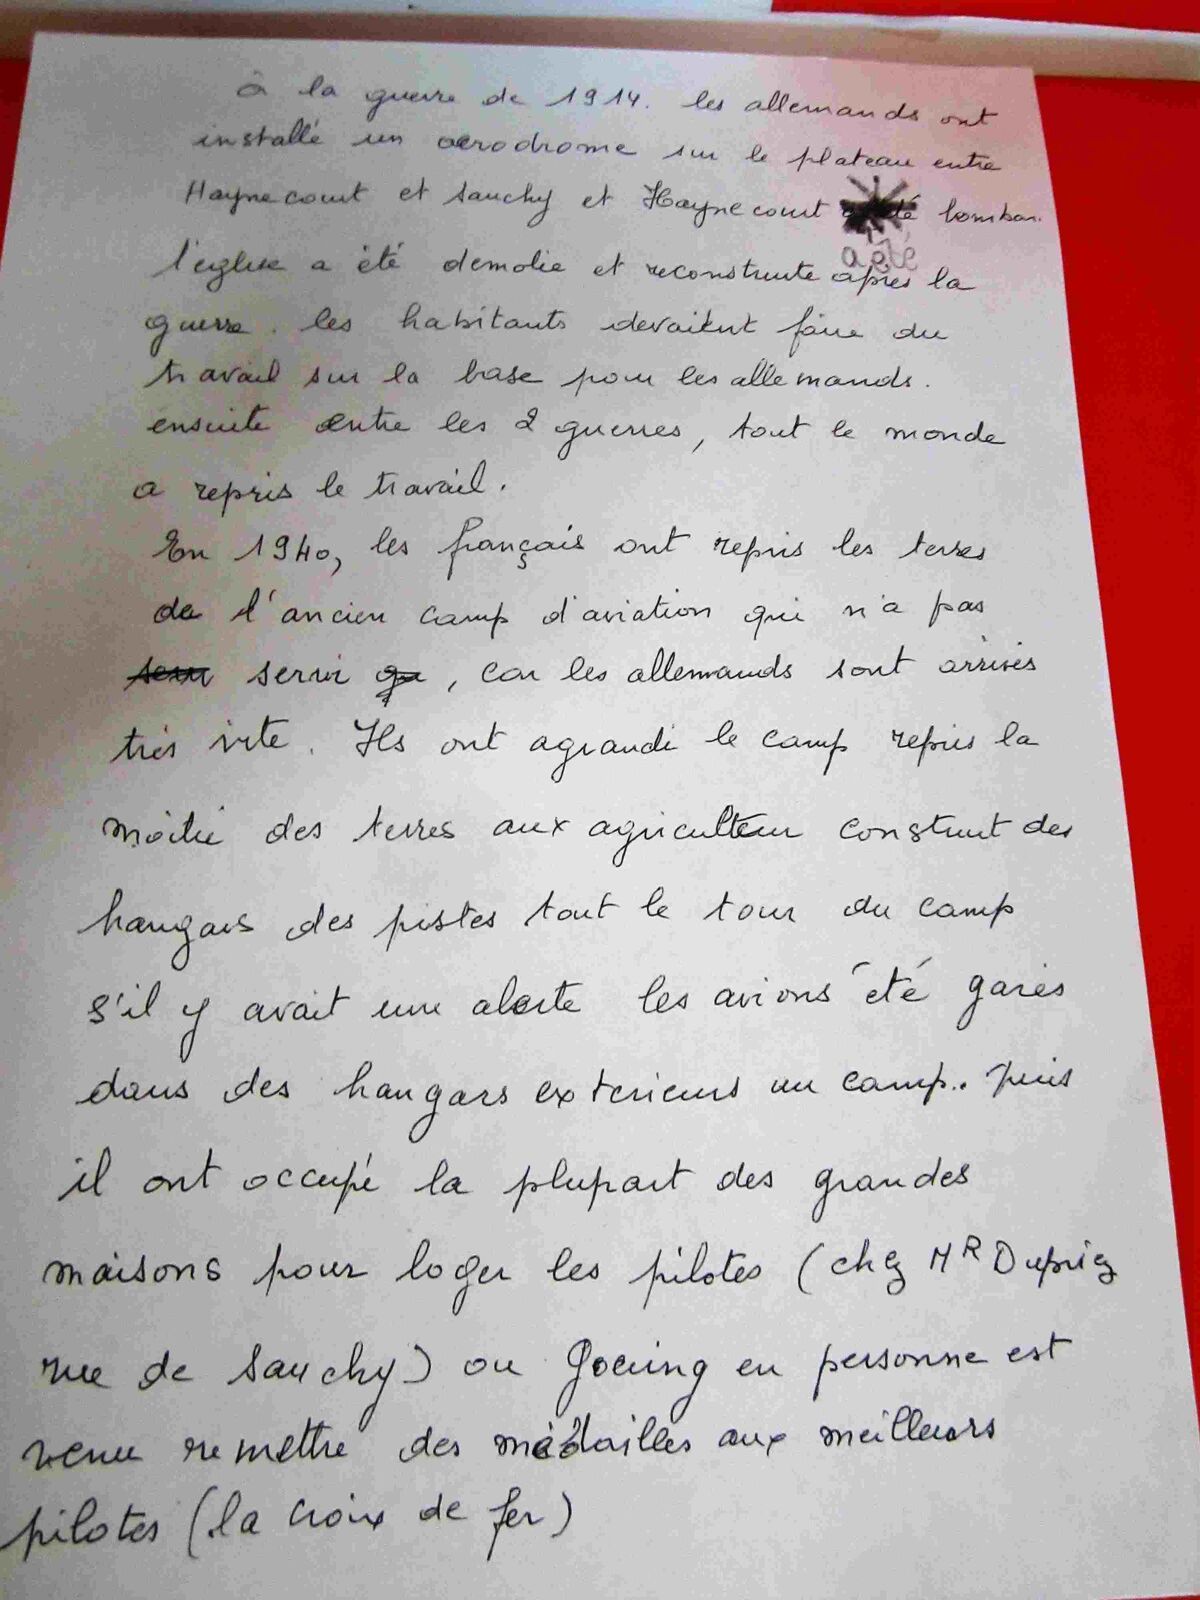 à la guerre de 1914. les allemands ont
installé un aerodrome sur le plateau entre
Haynecourt et Sauchy et Haynecourt a été bombar.
l'eglise a été demolie et reconstruite après la
guerre. les habitants devaient faire du
travail sur la base pour les allemands.
ensuite entre les 2 guerres, tout le monde
a repris le travail.
En 1940, les français ont repris les terres
de l'ancien camp d'aviation qui n'a pas
servir , car les allemands sont arrivés
très vite. Ils ont agrandi le camp repris la
moitié des terres aux agriculteur construit des
hangars des pistes tout le tour du camp
s'il y avait une alerte les avions été garés
dans des hangars exterieurs au camp.. puis
il ont occupé la plupart des grandes
maisons pour loger les pilotes (chez MR Dupriez
rue de Sauchy) ou Goering en personne est
venu remettre des médailles aux meilleurs
pilotes (la croix de fer)